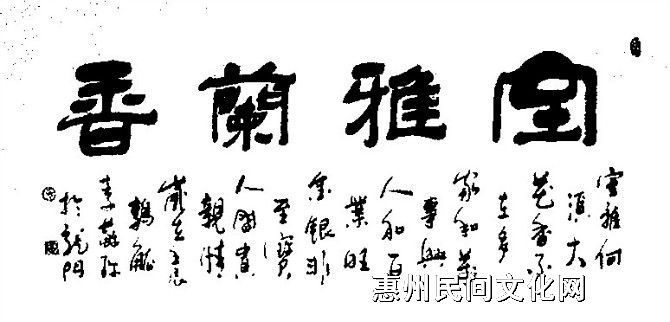 室雅蘭香
室雅何
須大
花香不
在多
家和萬
事興
人和百
業旺
金銀非
至寶
人間貴
親情
歲在壬辰
於龍門
惠州民间文化网